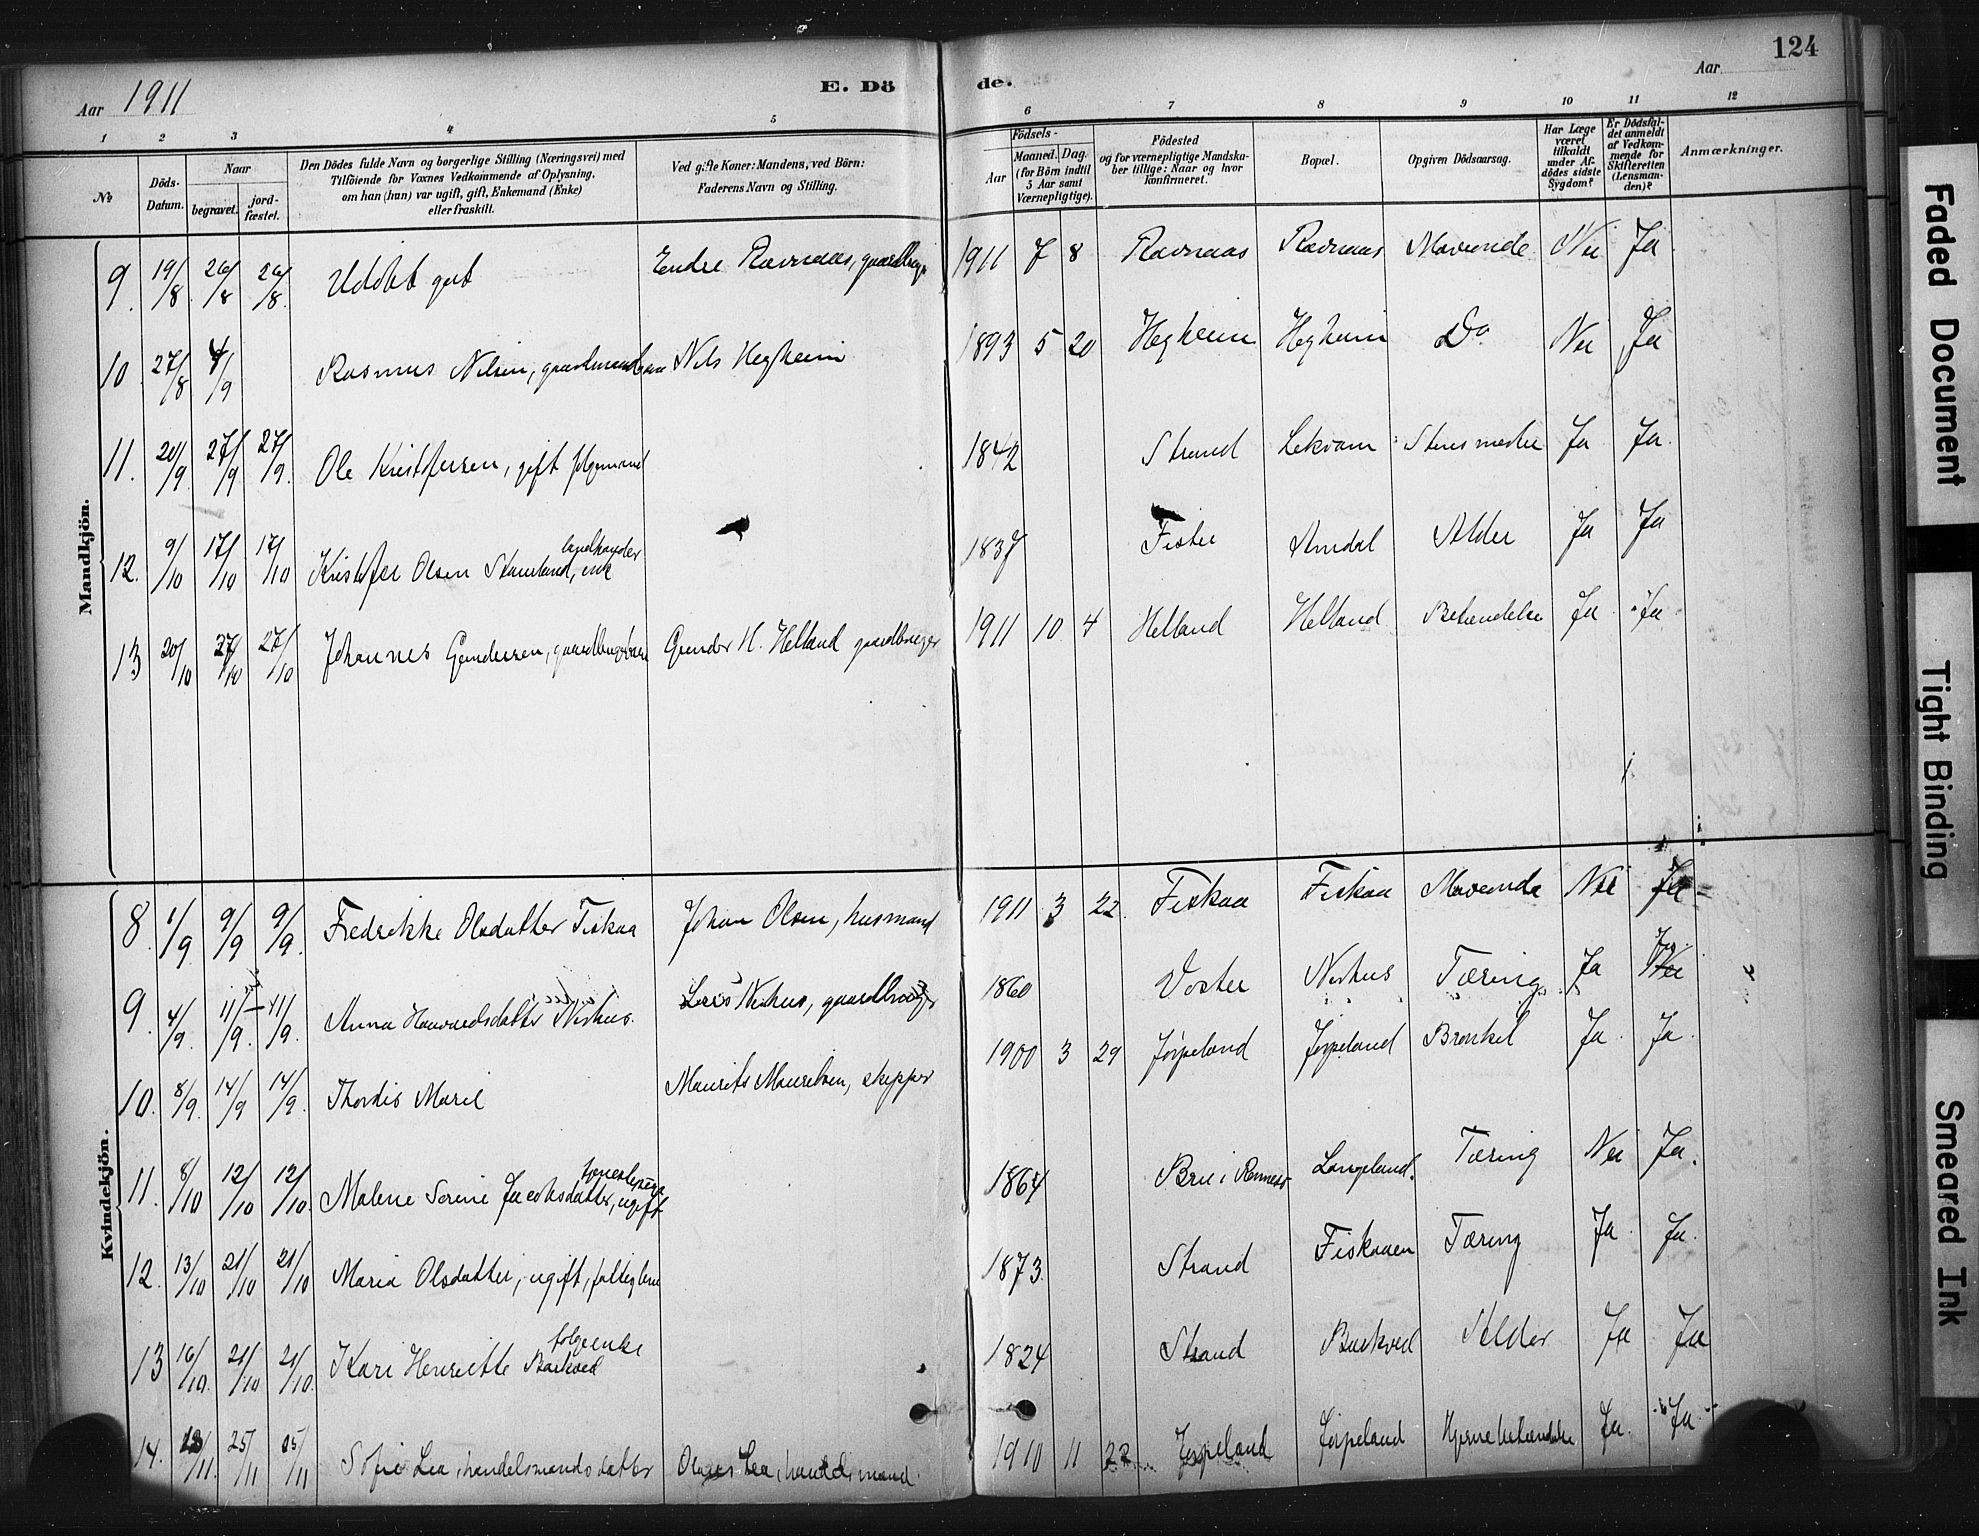 124
Aar 1911 E. Dö de. Aar
1 2 3 4 5 6 7 8 9 10 11 12
№
Döds-Datum.
Naar
begravet.
jord-fæstet.
Den Dödes fulde Navn og borgerlige Stilling (Næringsvei) med
Tilföiende for Voxnes Vedkommende af Oplysning,
om han (hun) var ugift, gift, Enkemand (Enke)
eller fraskilt.
Ved gifte Koner: Mandens, ved Börn:
Faderens Navn og Stilling.
Födsels-
Aar
Maaned. Dag.
(for Börn indtil
5 Aar samt
Værnepligtige).
Födested
og for værnepligtige Mandska-
ber tillige: Naar og hvor
konfirmeret.
Bopæl.
Opgiven Dödsaarsag.
Har Læge
været
tilkaldt
under Af-
dödes sidste
Sygdom?
Er Dödsfal-
det anmeldt
af Vedkom-
mende for
Skifteretten
(Lensman-
den)?
Anmærkninger.
Mandkjön.
9. 19/8 26/8 26/8. Udöbt gut Endre Ravnaas, 1911 7 8 Ravnaas Ravnaas Mavonde Nei Ja
10. 27/8 4/9 Rasmus Nilsen, Nils Hegheim 1893 5 20 Hegheim Hegheim Do Nei Ja
11. 20/9 27/9 27/9. Ole Kristofersen, gift 1842 Strand Lekvam Ja Ja.
12. 9/10 17/10 17/10 Kristofer Olsen 1837 Fister Alder Ja Ja
13 20/10 27/10 27/10 Johannes Gundersen, Gunder H. Helland gaardbruger 1911 10 4 Helland Helland Betændelse Ja Ja
Kvindekjön.
8. 1/9 9/9 9/9. Fredrikke Olsdatter Fiskaa Johan Olsen, husmand 1911 3 22. Fiskaa Fiskaa Nei Ja
9. 4/9. 11/9. 11/9. Anna Neshus. Neshus, gaardbruger 1860 Voster Neshus Tæring Ja Ja Nei
10. 8/9. 14/9 14/9. Thordis Marie Maurits Mauritsen, skipper 1900 3 29 Jørpeland Jørpeland Ja Ja
11. 8/10 12/10 12/10. Malene Serine Jacobsdatter, ugift 1864 Bru i Rennesø Langeland. Tæring Nei Ja.
12. 13/10 21/10 21/10 Maria Olsdatter, ugift, 1873. Strand Fiskaaen Tæring Ja Ja.
13 16/10. 21/10 21/10. Kari Henriette Barkved folgeenke 1824 Strand Barkved Alder Ja Ja
14. 25/11 25/11 Sofie Lea, handelsmands datter Lea, handelsmand. 1910 11 22 Jørpeland Jørpeland Hjernebetændelse Ja. Ja
Faded Document
Tight Binding
Smeared Ink